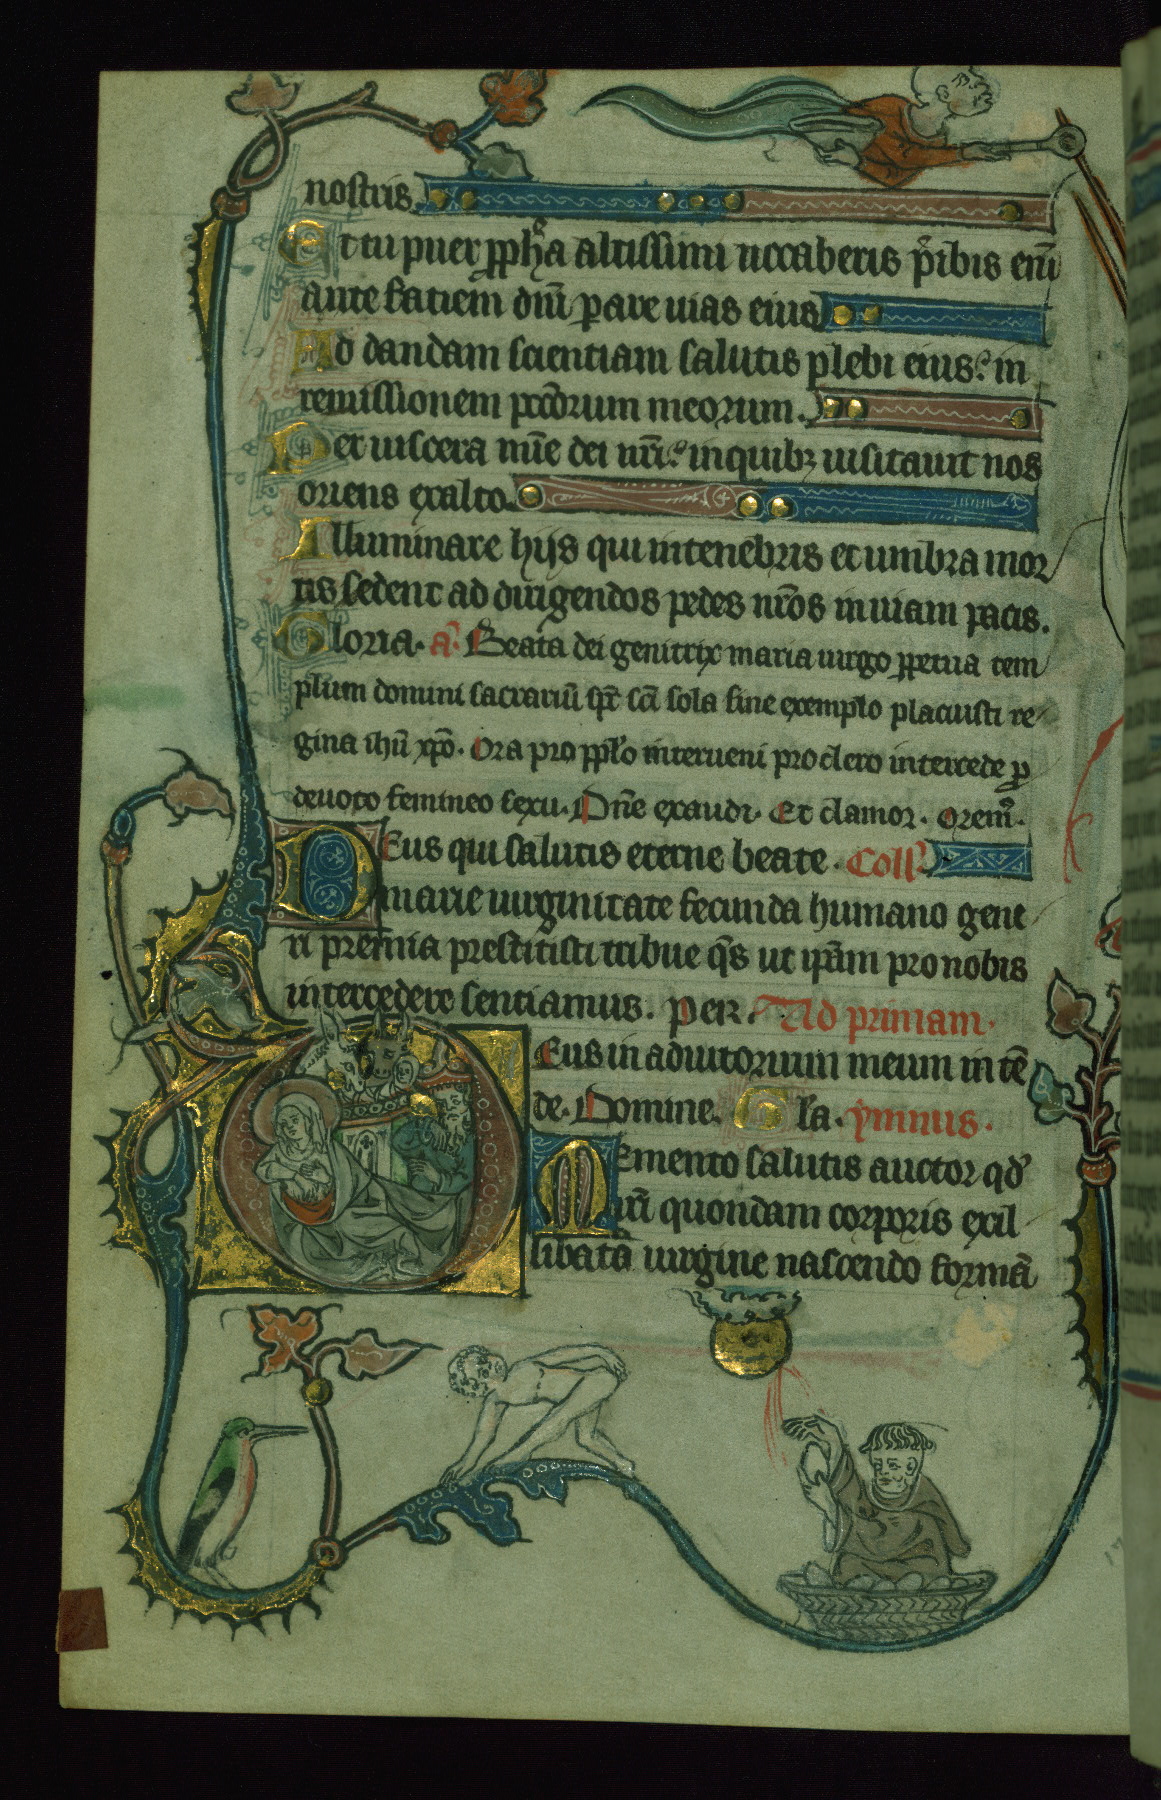 nostris.
Et tu puer ꝓph̾a altissimi uocaberis p̾ibis enī
ante faciem dn̄i ꝑare uias eius
Ad dandam scientiam salutis plebi eius: in
remissionem pccōrum meorum.
Per uiscera mīe dei nr̄i: in quibꝫ uisitauit nos
oriens exalto.
Illuminare hijs qui in tenebris et umbra mor
tis sedent ad dirigendos pedes nr̄os in uiam pacis.
Gloria. a̾. Beata dei genitrix maria uirgo ꝑpetua tem
plum domini sacrariū sp̄c sc̄i sola sine exemplo placuisti re
gina ihū xp̄o. Ora pro pplo interueni pro clero intercede ꝑ
deuoto femineo sexu. Dn̄e exaudi. Et clamor. Orem̾.
Deus qui salutis eterne beate. Coll̾
marie uirginitate fecunda humano gene
ri premia prestitisti tribue qs̄ ut ip̄am pro nobis
intercedere sentiamus. per. Ad primam.
Deus in adiutorium meum intē
de. Domine. Gla. ymnus.
Memento salutis auctor qd̾
nr̄i quondam corporis exil
libata uirgine nascendo formā